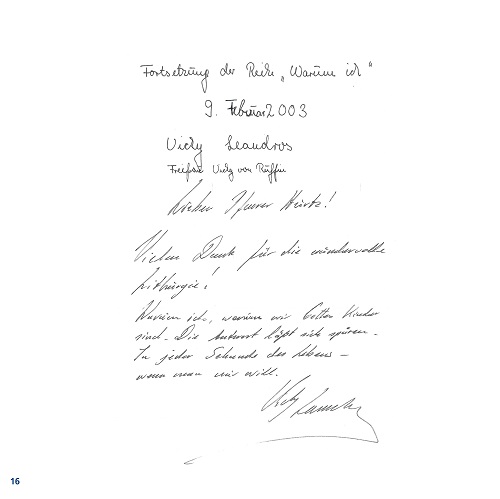 Fortsetzung der Reihe „Warum ich"
9. Februar 2003
Vicky Leandros
Freifrau Vicky von Ruffin
Lieber Pfarrer Kürtz!
Vielen Dank für die wundervolle
Lithurgie!
Warum ich, warum wir Gottes Kinder
sind. Die Antwort läßt sich spüren.
In jeder Sekunde des Lebens –
wenn man nur will.
Vicky Leandros
16